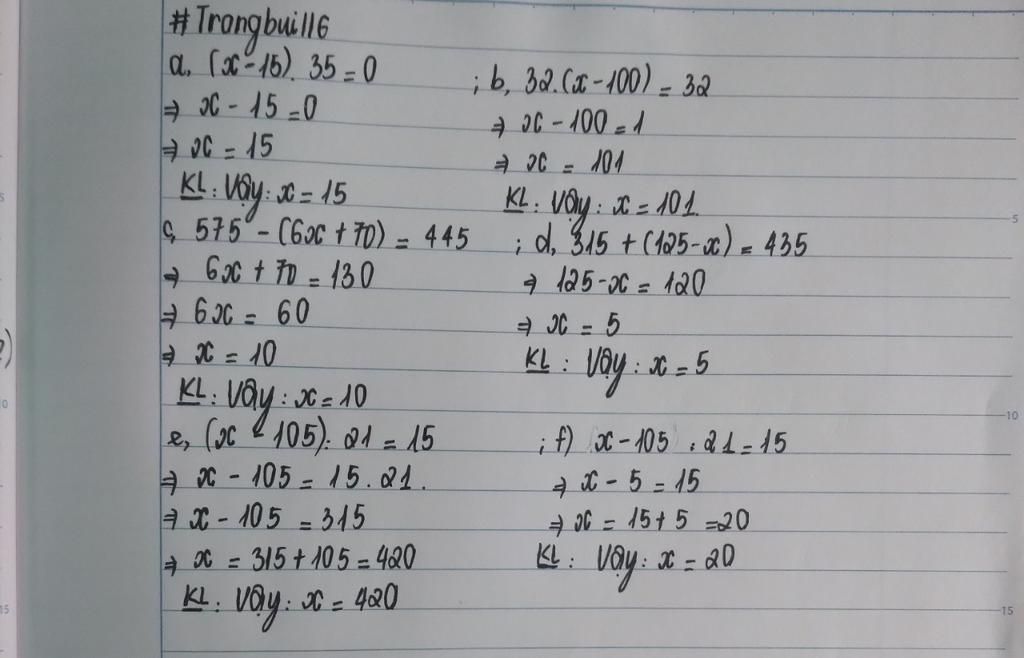 #Trangbui116
a, (x-15). 35 = 0
⇒ x - 15 = 0
⇒ x = 15
KL: Vậy: x = 15
; b, 32.(x-100) = 32
⇒ x - 100 = 1
⇒ x = 101
KL: Vậy: x = 101.
c, 575 - (6x + 70) = 445
⇒ 6x + 70 = 130
⇒ 6x = 60
⇒ x = 10
KL: Vậy: x = 10
; d, 315 + (125-x) = 435
⇒ 125-x = 120
⇒ x = 5
KL: Vậy: x = 5
e, (x - 105): 21 = 15
⇒ x - 105 = 15.21.
⇒ x - 105 = 315
⇒ x = 315 + 105 = 420
KL: Vậy: x = 420
; f) x - 105 : 21 = 15
⇒ x - 5 = 15
⇒ x = 15 + 5 = 20
KL: Vậy: x = 20
5
10
15